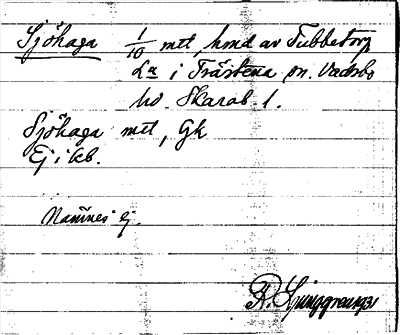 Sjöhaga 1/10 mtl, hmd av Tubbetorp
La i Trästena sn. Vadsbo
hd. Skarab. l.
Sjöhaga mtl, Gk
Ej i kb.
Namnes ej.
R. Ljunggren 1931